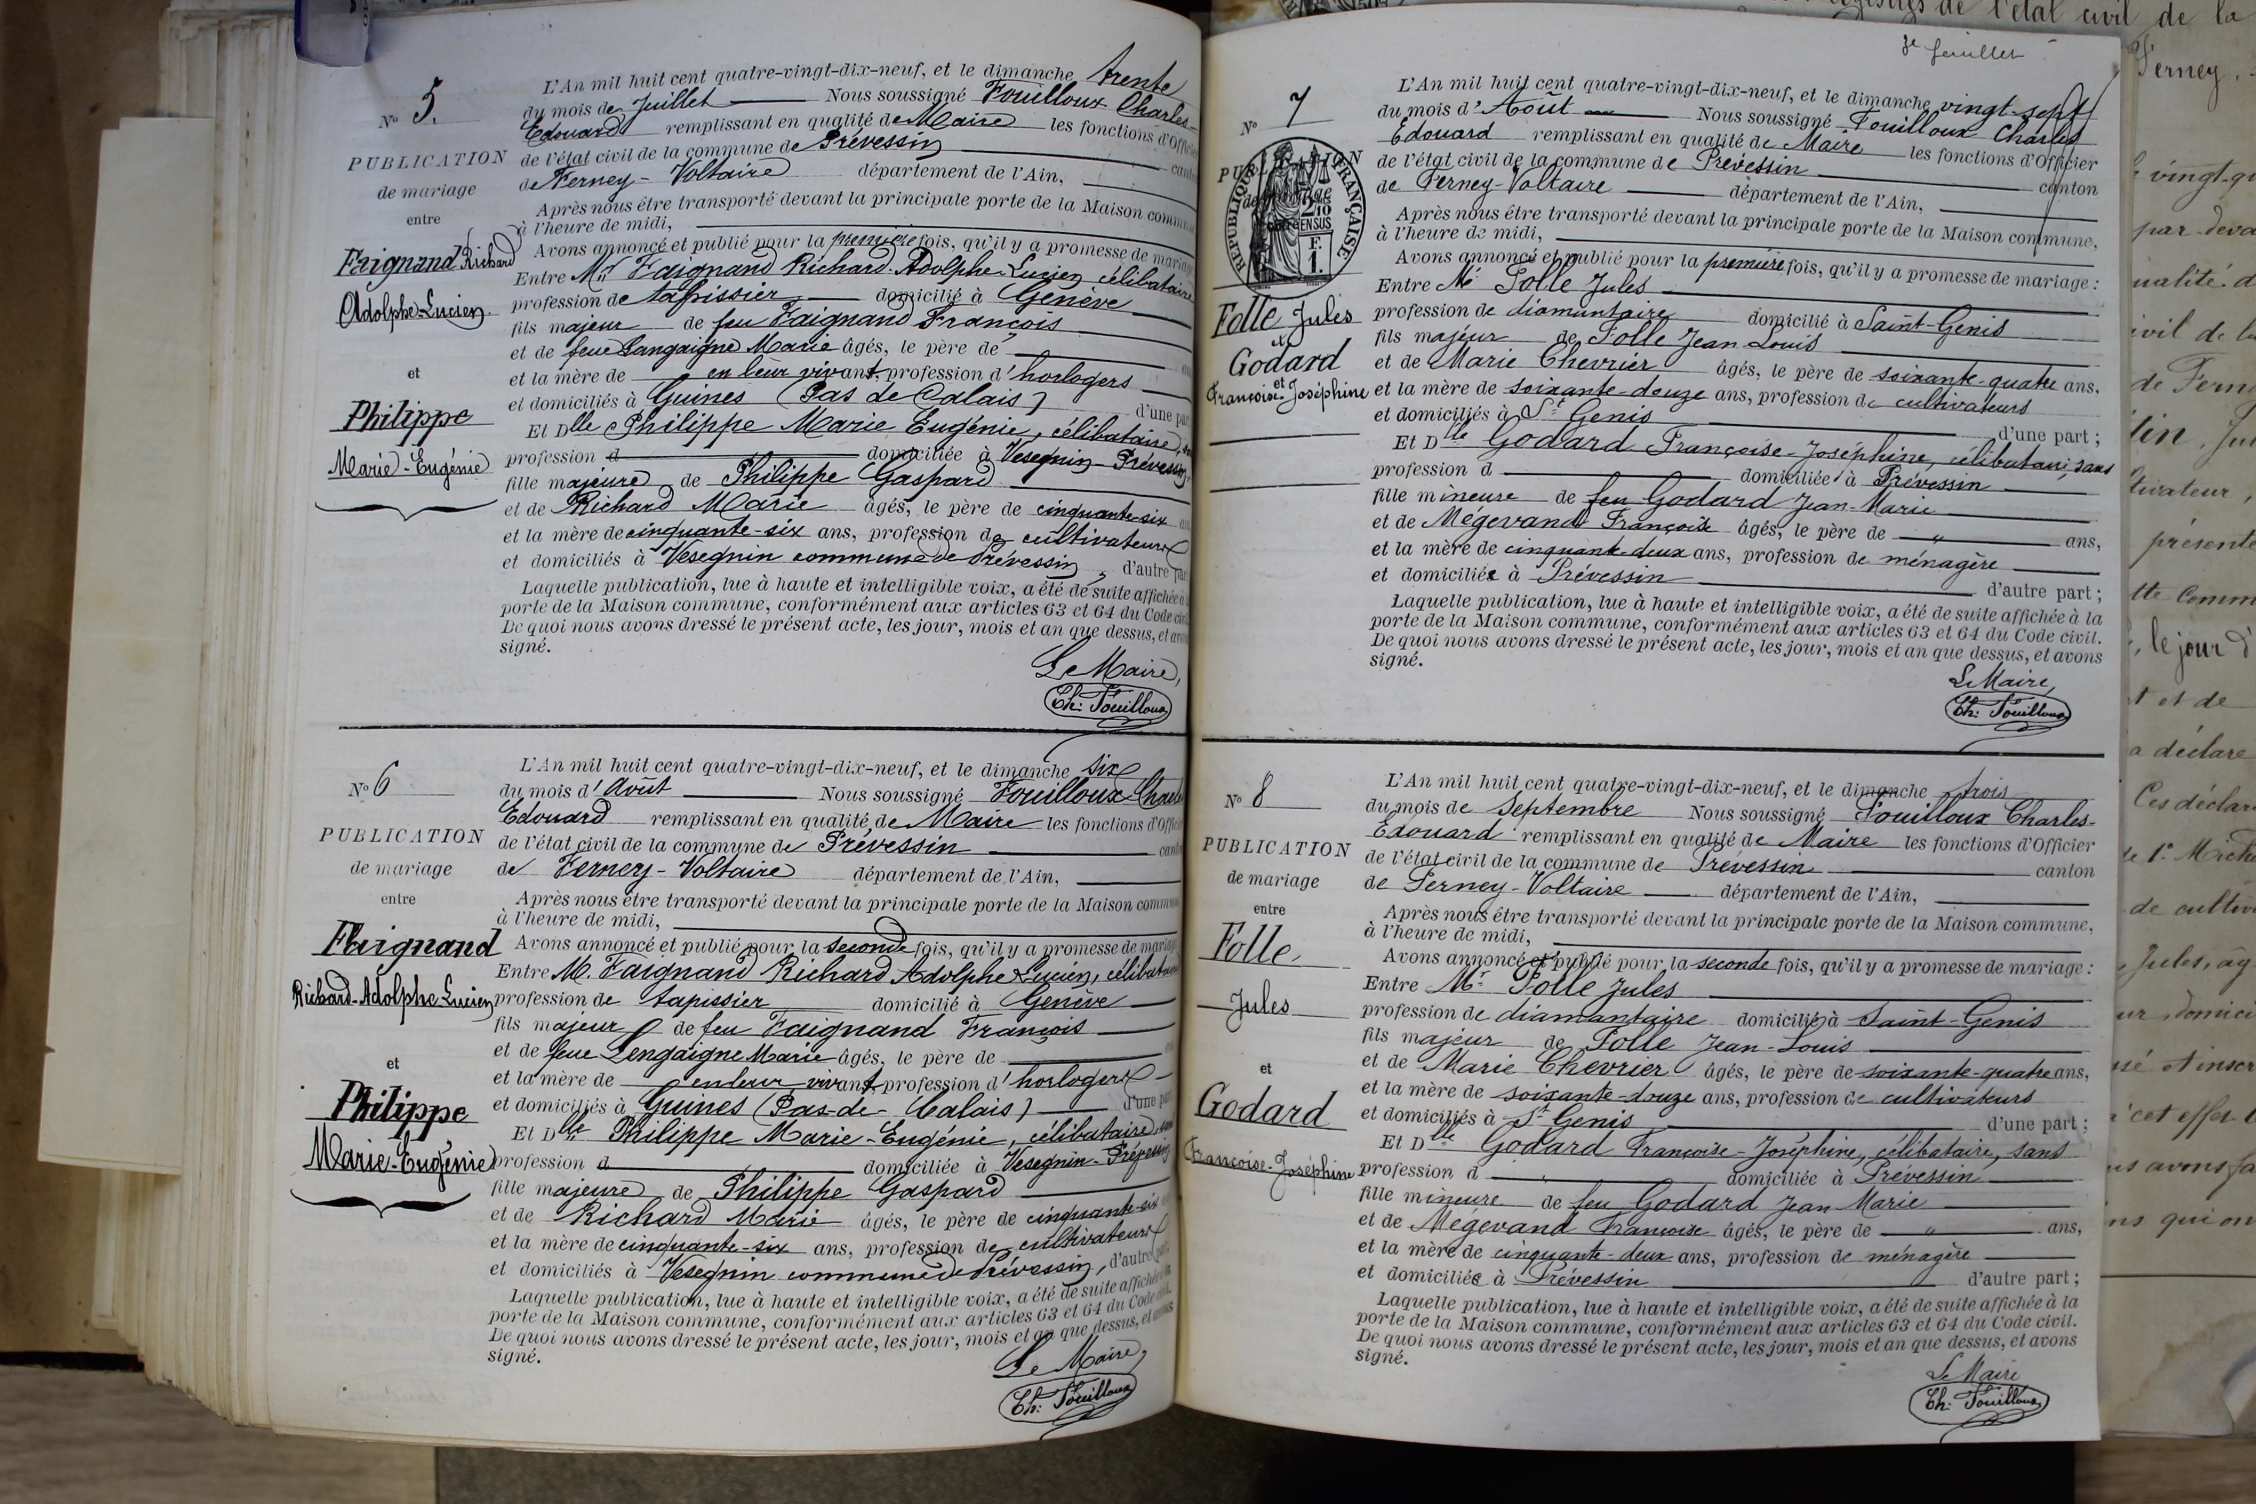 N° 5.
PUBLICATION
de mariage
entre
Faignand Richard
Adolphe-Lucien.
et
Philippe
Marie-Eugénie
L'An mil huit cent quatre-vingt-dix-neuf, et le dimanche trente
du mois de Juillet Nous soussigné Fouilloux Charles-
Edouard remplissant en qualité de Maire les fonctions d'Officier
de l'état civil de la commune de Prévessin
de Ferney-Voltaire département de l'Ain,
Après nous être transporté devant la principale porte de la Maison commune
à l'heure de midi,
Avons annoncé et publié pour la première fois, qu'il y a promesse de mariage
Entre Mr Faignand Richard Adolphe Lucien célibataire
profession de tapissier domicilié à Genève
fils majeur de feu Faignand François
et de feue Langaigne Marie âgés, le père de "
et la mère de en leur vivant, profession d'horlogers
et domiciliés à Guines (Pas de Calais) d'une part
Et Dlle Philippe Marie Eugénie, célibataire,
profession d domiciliée à Vesegnin-Prévessin
fille majeure de Philippe Gaspard
et de Richard Marie âgés, le père de cinquante-six
et la mère de cinquante-six ans, profession de cultivateurs
et domiciliés à Vesegnin commune de Prévessin, d'autre part
Laquelle publication, lue à haute et intelligible voix, a été de suite affichée à
porte de la Maison commune, conformément aux articles 63 et 64 du Code civil
De quoi nous avons dressé le présent acte, les jour, mois et an que dessus, et avons
signé.
Le Maire,
Ch: Fouilloux
N° 6
PUBLICATION
de mariage
entre
Faignand
Richard-Adolphe Lucien
et
Philippe
Marie-Eugénie
L'An mil huit cent quatre-vingt-dix-neuf, et le dimanche six
du mois d'Août Nous soussigné Fouilloux Charles
Edouard remplissant en qualité de Maire les fonctions d'Officier
de l'état civil de la commune de Prévessin canton
de Ferney-Voltaire département de l'Ain,
Après nous être transporté devant la principale porte de la Maison commune
à l'heure de midi,
Avons annoncé et publié pour la seconde fois, qu'il y a promesse de mariage
Entre M. Faignand Richard Adolphe Lucien, célibataire
profession de tapissier domicilié à Genève
fils majeur de feu Faignand François
et de feue Lengaigne Marie âgés, le père de
et la mère de en leur vivant, profession d'horlogers
et domiciliés à Guines (Pas-de-Calais) d'une part
Et Dlle Philippe Marie-Eugénie, célibataire, sans
profession d domiciliée à Vesegnin-Prévessin
fille majeure de Philippe Gaspard
et de Richard Marie âgés, le père de cinquante-six
et la mère de cinquante-six ans, profession de cultivateurs
et domiciliés à Vesegnin commune de Prévessin, d'autre part
Laquelle publication, lue à haute et intelligible voix, a été de suite affichée
porte de la Maison commune, conformément aux articles 63 et 64 du Code civil.
De quoi nous avons dressé le présent acte, les jour, mois et an que dessus, et avons
signé.
Le Maire,
Ch: Fouilloux
3e feuillet
N° 7
PUBLICATION
de mariage
entre
RÉPUBLIQUE FRANÇAISE
2/10 EN SUS
F.
1.
Folle Jules
et
Godard
Françoise-Joséphine
L'An mil huit cent quatre-vingt-dix-neuf, et le dimanche vingt-sept
du mois d'Août Nous soussigné Fouilloux Charles
Edouard remplissant en qualité de Maire les fonctions d'Officier
de l'état civil de la commune de Prévessin canton
de Ferney-Voltaire département de l'Ain,
Après nous être transporté devant la principale porte de la Maison commune,
à l'heure de midi,
Avons annoncé et publié pour la première fois, qu'il y a promesse de mariage :
Entre Mr Folle Jules
profession de diamantaire domicilié à Saint-Genis
fils majeur de Folle Jean Louis
et de Marie Chevrier âgés, le père de soixante-quatre ans,
et la mère de soixante-douze ans, profession de cultivateurs
et domiciliés à St Genis d'une part ;
Et Dlle Godard Françoise-Joséphine, célibataire, sans
profession d domiciliée à Prévessin
fille mineure de feu Godard Jean-Marie
et de Mégevand Françoise âgés, le père de " ans,
et la mère de cinquante-deux ans, profession de ménagère
et domiciliée à Prévessin d'autre part ;
Laquelle publication, lue à haute et intelligible voix, a été de suite affichée à la
porte de la Maison commune, conformément aux articles 63 et 64 du Code civil.
De quoi nous avons dressé le présent acte, les jour, mois et an que dessus, et avons
signé.
Le Maire,
Ch: Fouilloux
N° 8
PUBLICATION
de mariage
entre
Folle,
Jules
et
Godard
Françoise-Joséphine
L'An mil huit cent quatre-vingt-dix-neuf, et le dimanche trois
du mois de Septembre Nous soussigné Fouilloux Charles-
Edouard remplissant en qualité de Maire les fonctions d'Officier
de l'état civil de la commune de Prévessin canton
de Ferney-Voltaire département de l'Ain,
Après nous être transporté devant la principale porte de la Maison commune,
à l'heure de midi,
Avons annoncé et publié pour la seconde fois, qu'il y a promesse de mariage :
Entre Mr Folle Jules
profession de diamantaire domicilié à Saint-Genis
fils majeur de Folle Jean-Louis
et de Marie Chevrier âgés, le père de soixante-quatre ans,
et la mère de soixante-douze ans, profession de cultivateurs
et domiciliés à St Genis d'une part ;
Et Dlle Godard Françoise-Joséphine, célibataire, sans
profession d " domiciliée à Prévessin
fille mineure de feu Godard Jean Marie
et de Mégevand Françoise âgés, le père de " ans,
et la mère de cinquante-deux ans, profession de ménagère
et domiciliée à Prévessin d'autre part ;
Laquelle publication, lue à haute et intelligible voix, a été de suite affichée à la
porte de la Maison commune, conformément aux articles 63 et 64 du Code civil.
De quoi nous avons dressé le présent acte, les jour, mois et an que dessus, et avons
signé.
Le Maire
Ch: Fouilloux
de l'état civil de la
Ferney,
vingt-qu
par deva
ualité d
ivil de la
de Fern
tin, Jul
tivateur,
présente
tte comm
, le jour d
t et de
a déclaré
Ces déclar
de cultiv
Jules, âg
ur, domici
sé et inscr
à cet effet
us avons fa
ns qui on